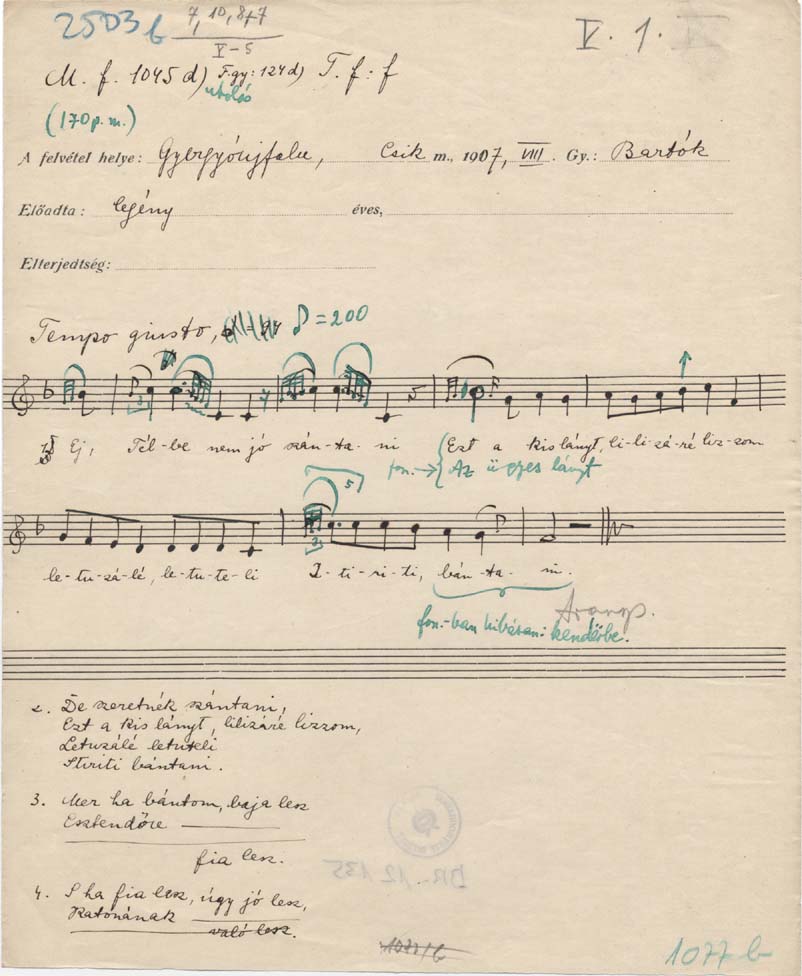 2503 b 7, 10, 8+7
V-5
V. 1.
M. f. 1045 d) F.gy: 124 d) T. f: f
utolsó
(170 p. m.)
A felvétel helye: Gyergyóújfalu, Csik m., 1907, VIII. Gy.: Bartók
Előadta: legény éves,
Elterjedtség:
Tempo giusto, ♪ = 200
1. Ej, Tél-be nem jó szán-ta-ni Ezt a kis lányt, li-li-zá-ré liz-zom
fon. → Az ügyes lányt
5
3
le-tu-zá-lé, le-tu-te-li I-ti-ri-ti, bán-ta-ni.
fon.-ban hibásan: kendőbe.
2. De szeretnék szántani,
Ezt a kis lányt, lilizáré lizzom,
Letuzálé letuteli
Itiriti bántani.
3. Mer ha bántom, baja lesz
Esztendőre
fia lesz.
4. S ha fia lesz, úgy jó lesz,
Katonának
való lesz.
BR. 12 135
1077/b
1077 b